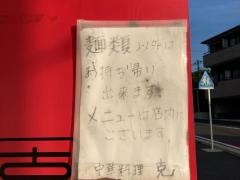 麺類
お持ち帰り
出来ます
メニューは店内に
ございます
中華料理 克